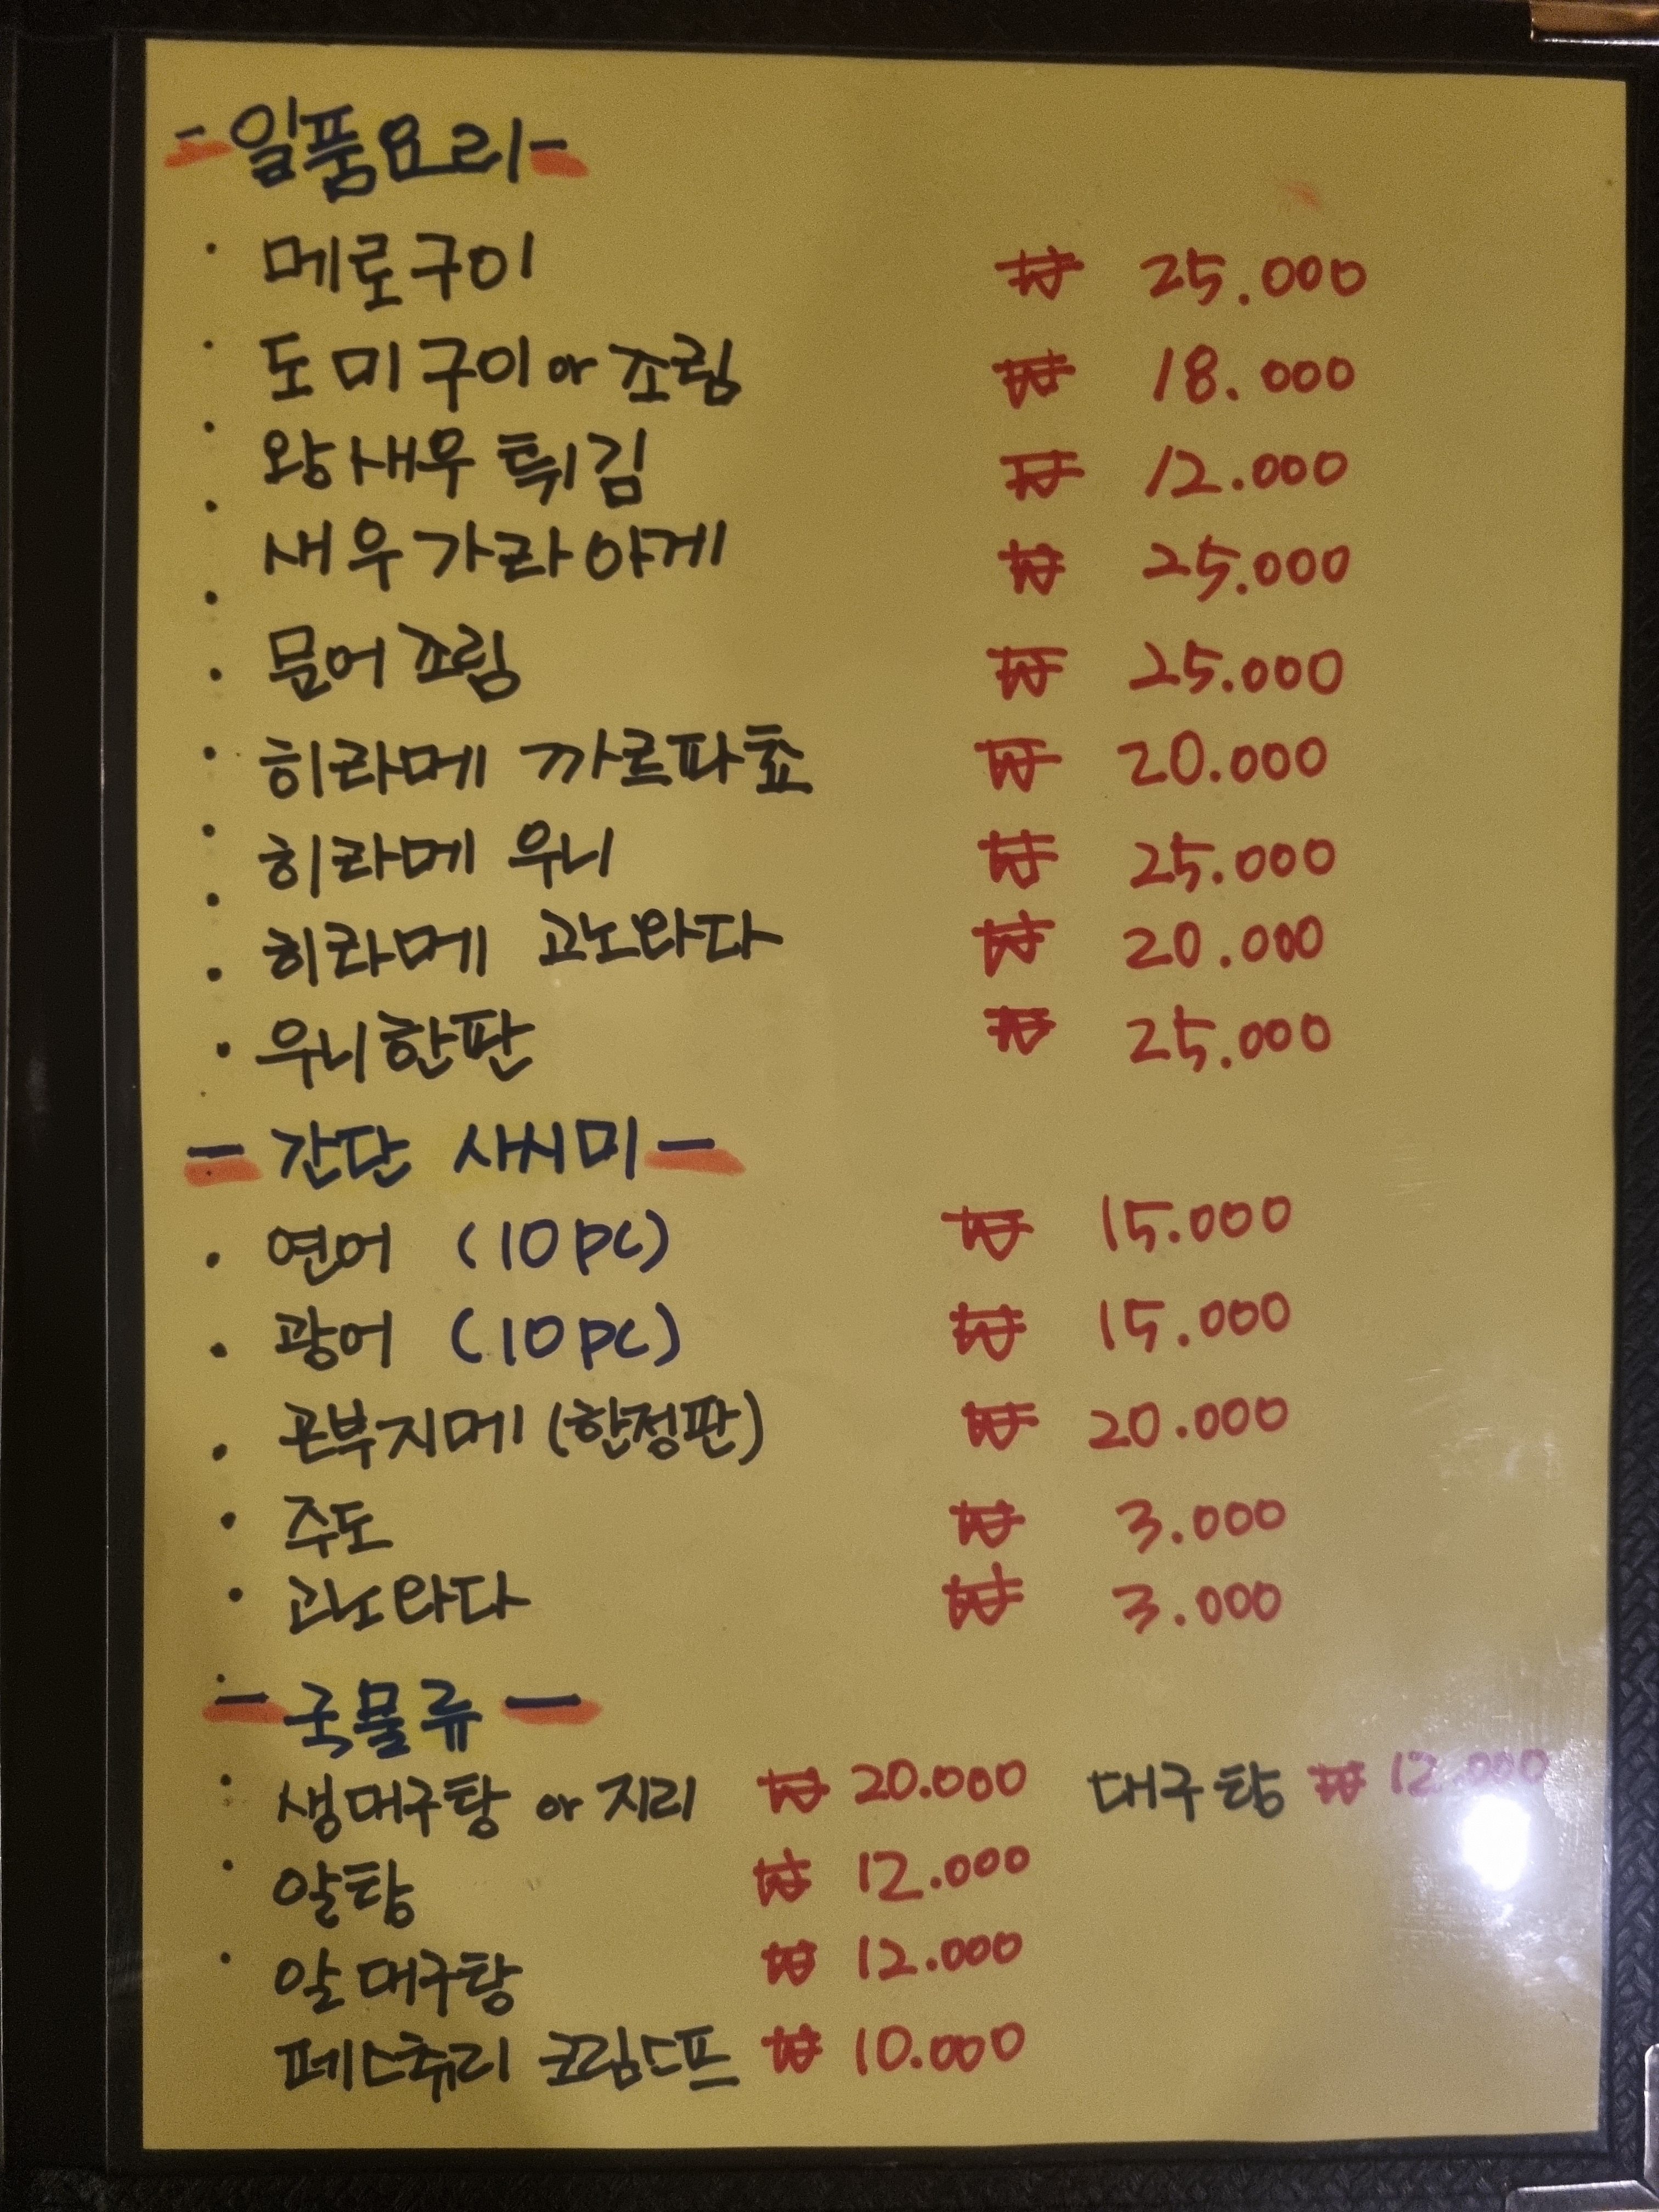 -일품요리-
· 메로구이 ₩ 25.000
· 도미구이 or 조림 ₩ 18.000
· 왕새우 튀김 ₩ 12.000
· 새우 가라아게 ₩ 25.000
· 문어 조림 ₩ 25.000
· 히라메 까르파쵸 ₩ 20.000
· 히라메 우니 ₩ 25.000
· 히라메 고노와다 ₩ 20.000
· 우니한판 ₩ 25.000
- 간단 사시미 -
· 연어 (10pc) ₩ 15.000
· 광어 (10pc) ₩ 15.000
· 곤부지메 (한정판) ₩ 20.000
· 주도 ₩ 3.000
· 고노와다 ₩ 3.000
- 국물류 -
· 생대구탕 or 지리 ₩ 20.000 대구탕 ₩ 12.000
· 알탕 ₩ 12.000
· 알 대구탕 ₩ 12.000
페스츄리 크림스프 ₩ 10.000